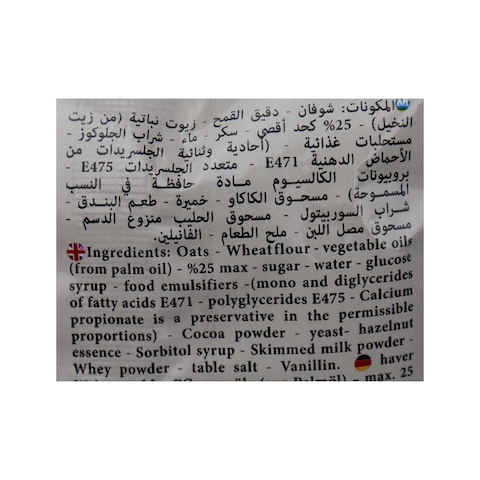 المكونات: شوفان - دقيق القمح - زيوت نباتية (من زيت
النخيل) - 25% كحد أقصى - سكر - ماء - شراب الجلوكوز -
مستحلبات غذائية - (أحادية وثنائية الجلسريدات من
الأحماض الدهنية E471 - متعدد الجلسريدات E475 -
بروبيونات الكالسيوم مادة حافظة في النسب
المسموحة) - مسحوق الكاكاو - خميرة - طعم البندق -
شراب السوربيتول - مسحوق الحليب منزوع الدسم -
مسحوق مصل اللبن - ملح الطعام - الفانيلين.
Ingredients: Oats - Wheat flour - vegetable oils
(from palm oil) - %25 max - sugar - water - glucose
syrup - food emulsifiers -(mono and diglycerides
of fatty acids E471 - polyglycerides E475 - Calcium
propionate is a preservative in the permissible
proportions) - Cocoa powder - yeast- hazelnut
essence - Sorbitol syrup - Skimmed milk powder -
Whey powder - table salt - Vanillin. haver
max. 25